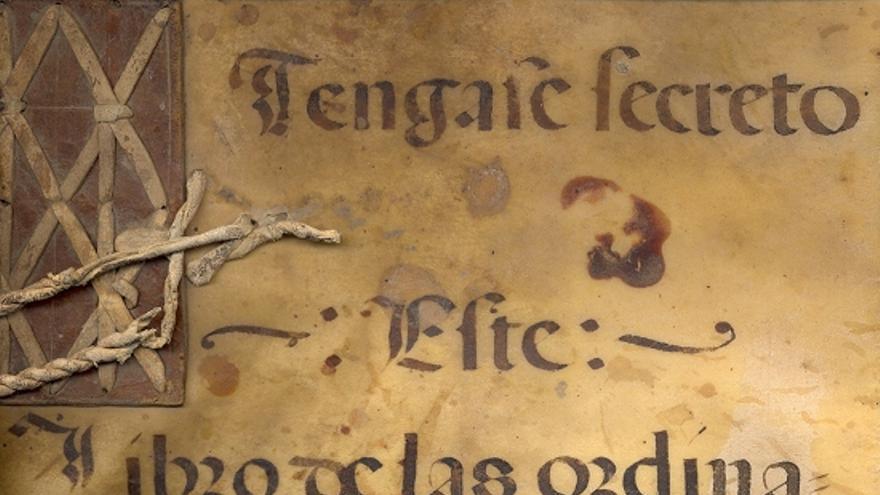 Tengaſe ſecreto
~:Eſte:~
Libro de las ordina=